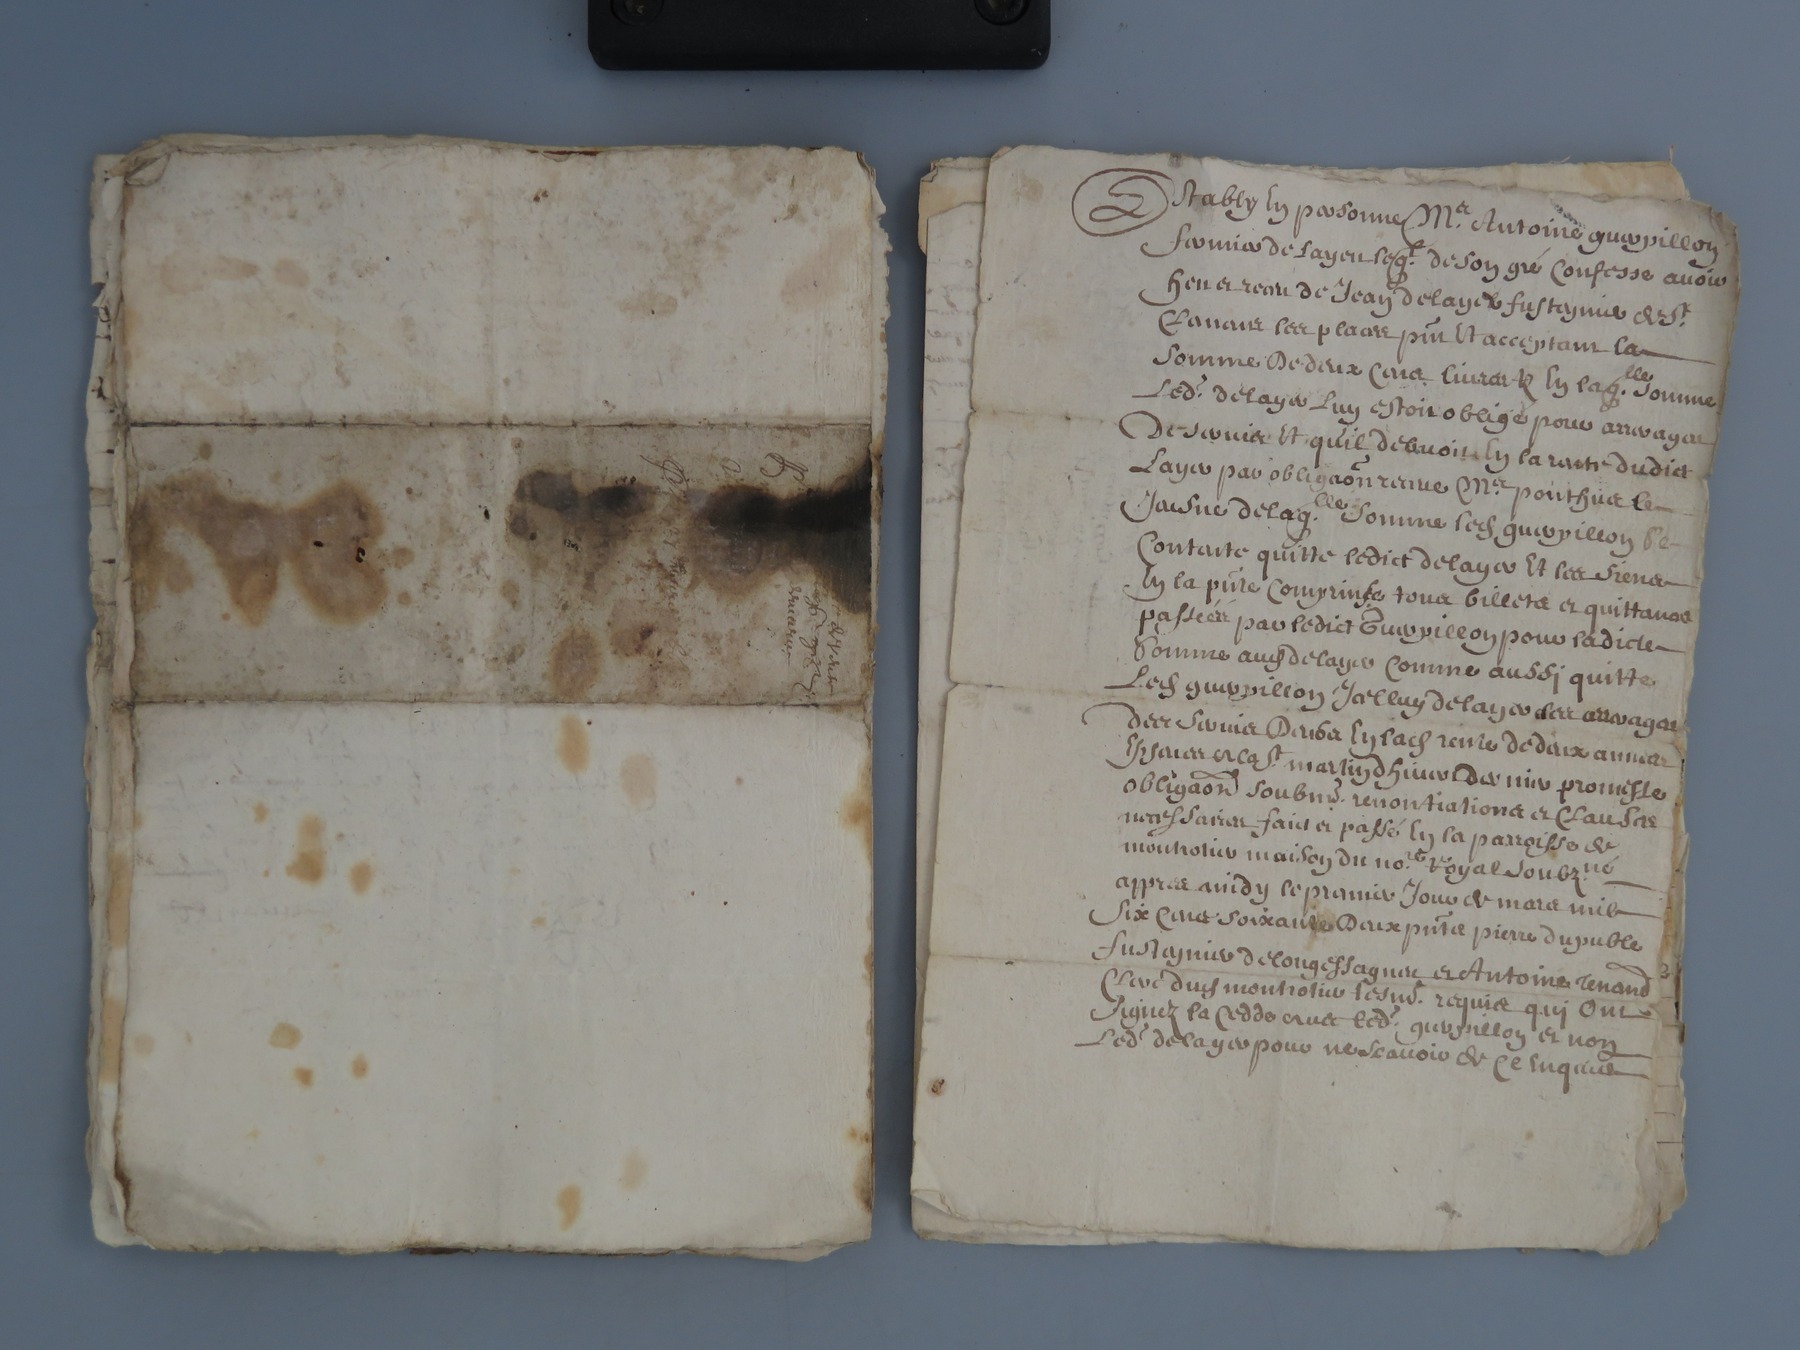 Estably En personne Mr. Antoine guerpillon
fermier de Layeu leql. de son gré Confesse avoir
heu et receu de Jean delayer fustaynier de St.
Clement les places pnt Et acceptant la
somme De deux Cens livres tz En laqlle. somme
Led. delayer Luy estoit obligé pour arreages
De servis Et quil debvoit En la rente dudict
Layeu par obligaôn receue Me. ponthus le
Jeusne de laqlle. somme led. guerpillon se
Contente quitte ledict delayer Et les siens
En la pnte Comprinse tous billets et quittances
passées par ledict Guerpillon pour ladicte
somme aud. delayer Comme aussj quitte
Led. guerpillon Jcelluy delayer des arreages
des servis Deubs En lad. rente de deux années
Escheues a la St. martin dhiver dernier promesse
obligaôn soubmis. renontiations et Clauses
necessaires faict et passé En la parroisse de
montrotier maison du nore. Royal soubzné
appres midy le premier Jour de mars mil
six Cens soixante Deux pnts pierre dupuble
fustaynier de longessagne et Antoine renand
Clerc dud. montrotier tesms. requis quj Ont
signez la Cedde avec led. guerpillon et non
Led. delayer pour ne scavoir de Ce Enquis